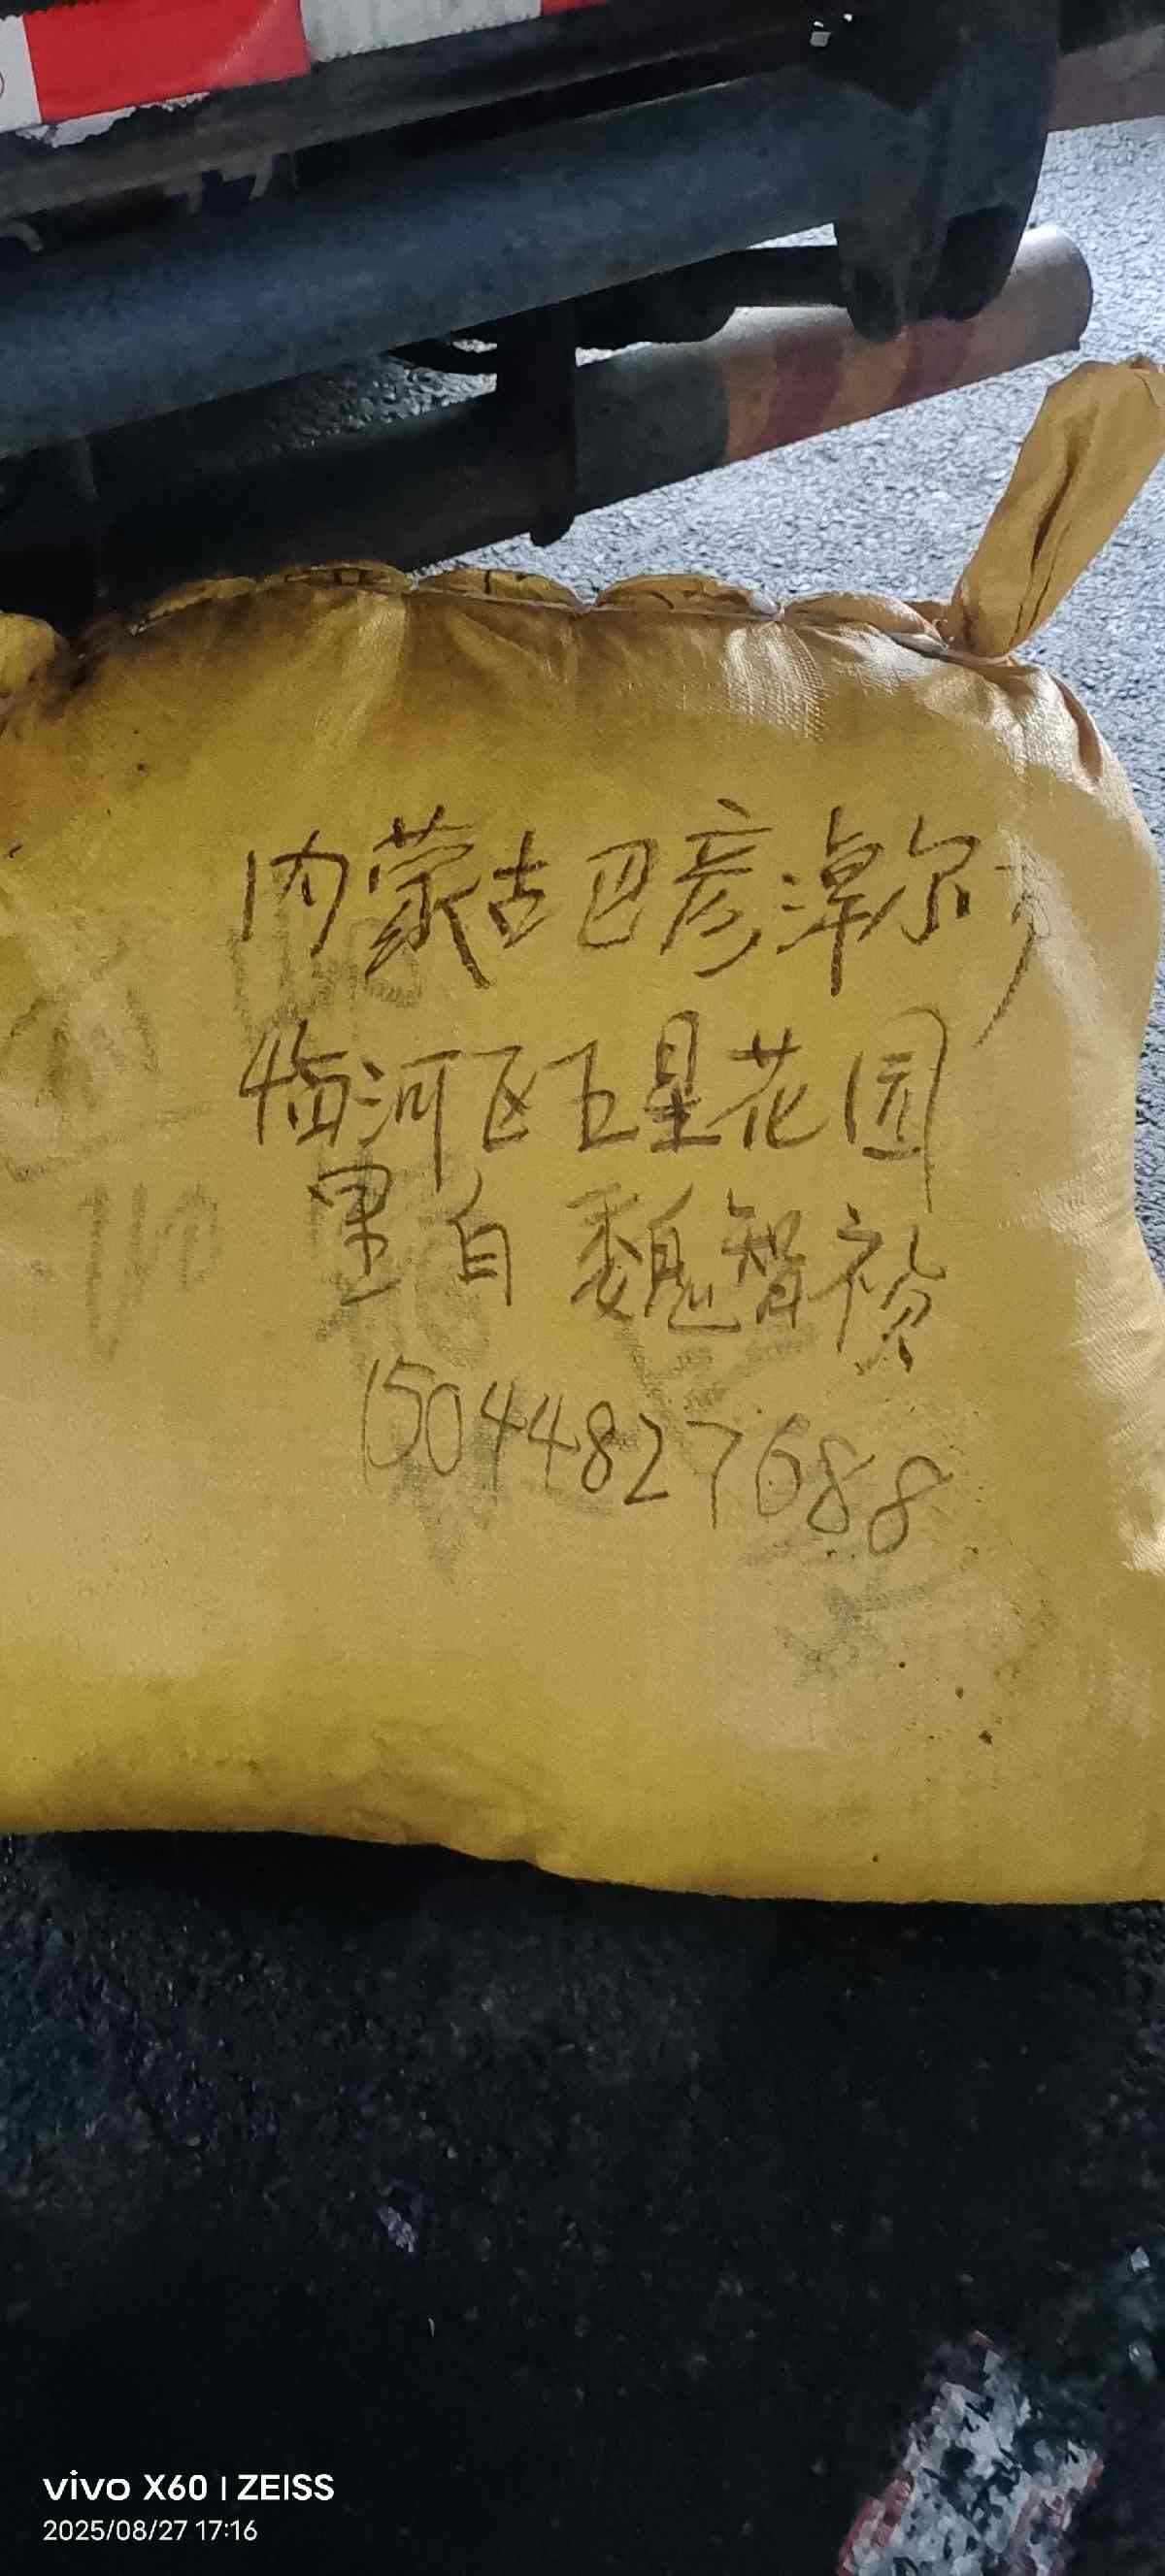 内蒙古巴彦淖尔市
临河区五星花园
里自 魏智
15044827688
vivo X60 | ZEISS
2025/08/27 17:16